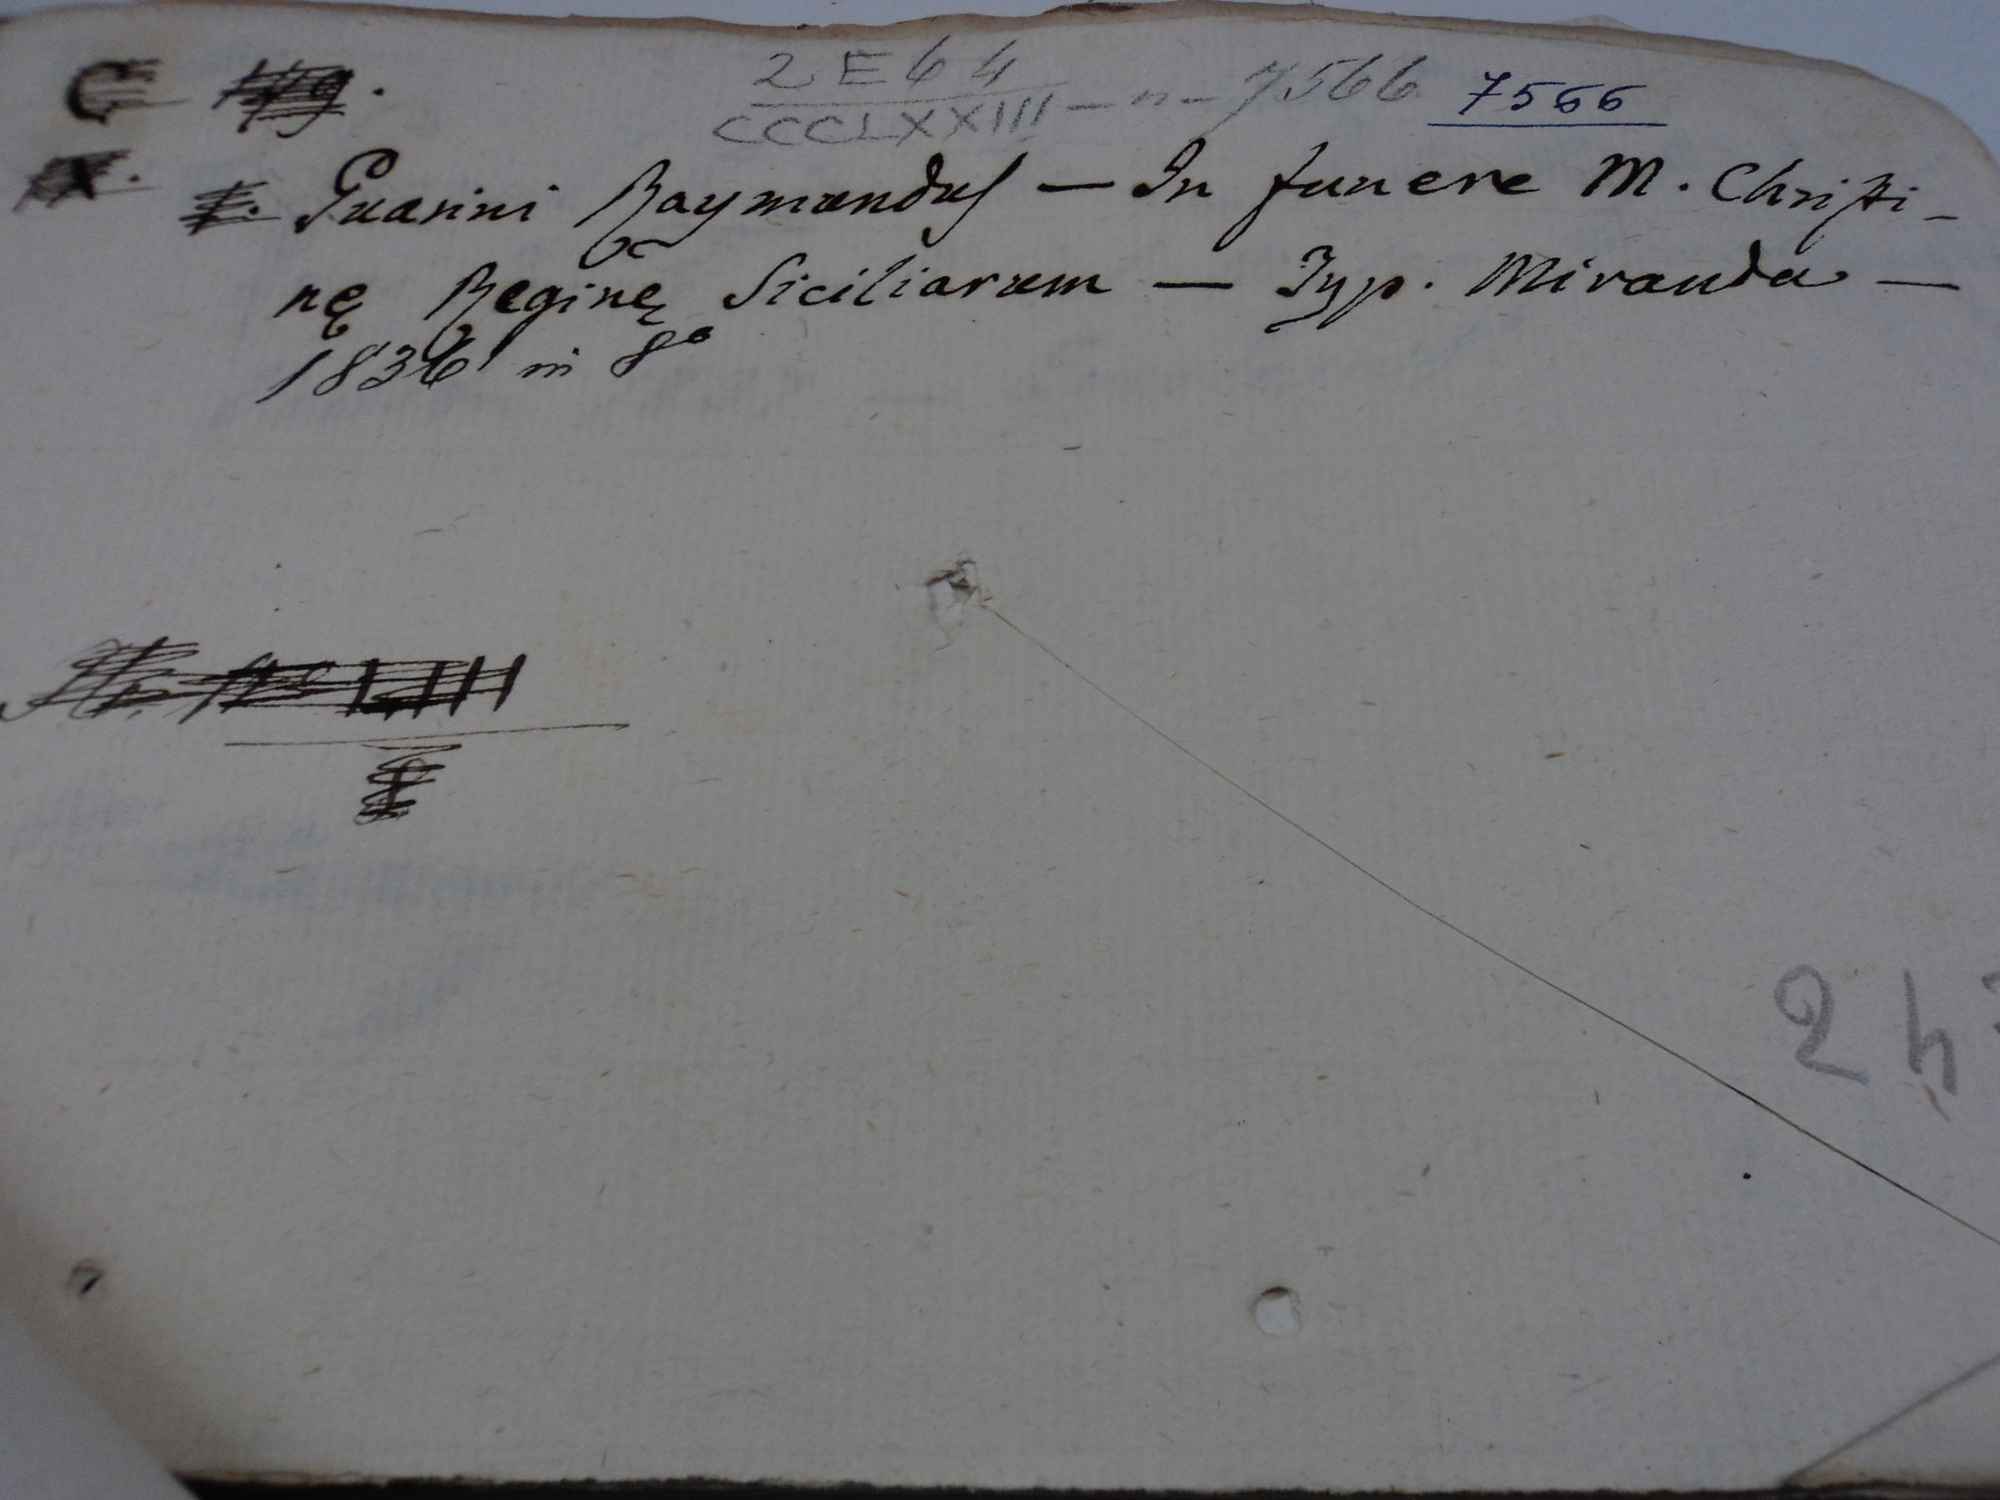 2 E 64
CCCLXXIII — n – 7566 7566
Guarini Raymundus — In funere M. Christi-
nę Reginę Siciliarum — Typ. Miranda —
1836 in 8°
24